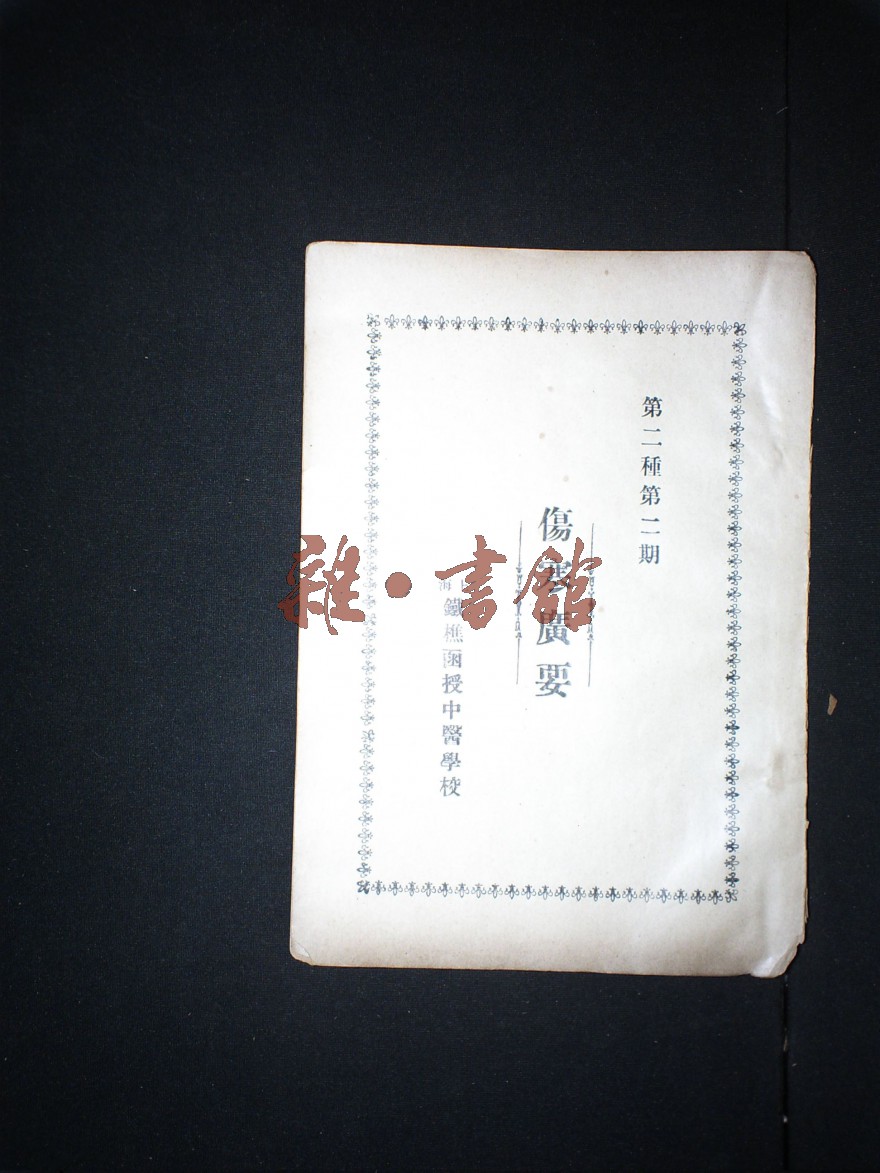 第二種第二期
傷寒廣要
海鐵樵函授中醫學校
雜·書館